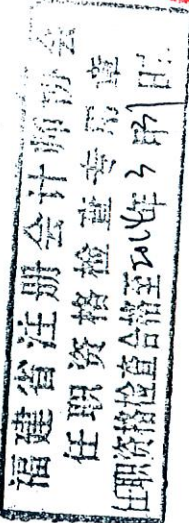 福建省注册会计师协会
任职资格检查专用章
任职资格检查合格至2016年3月31日